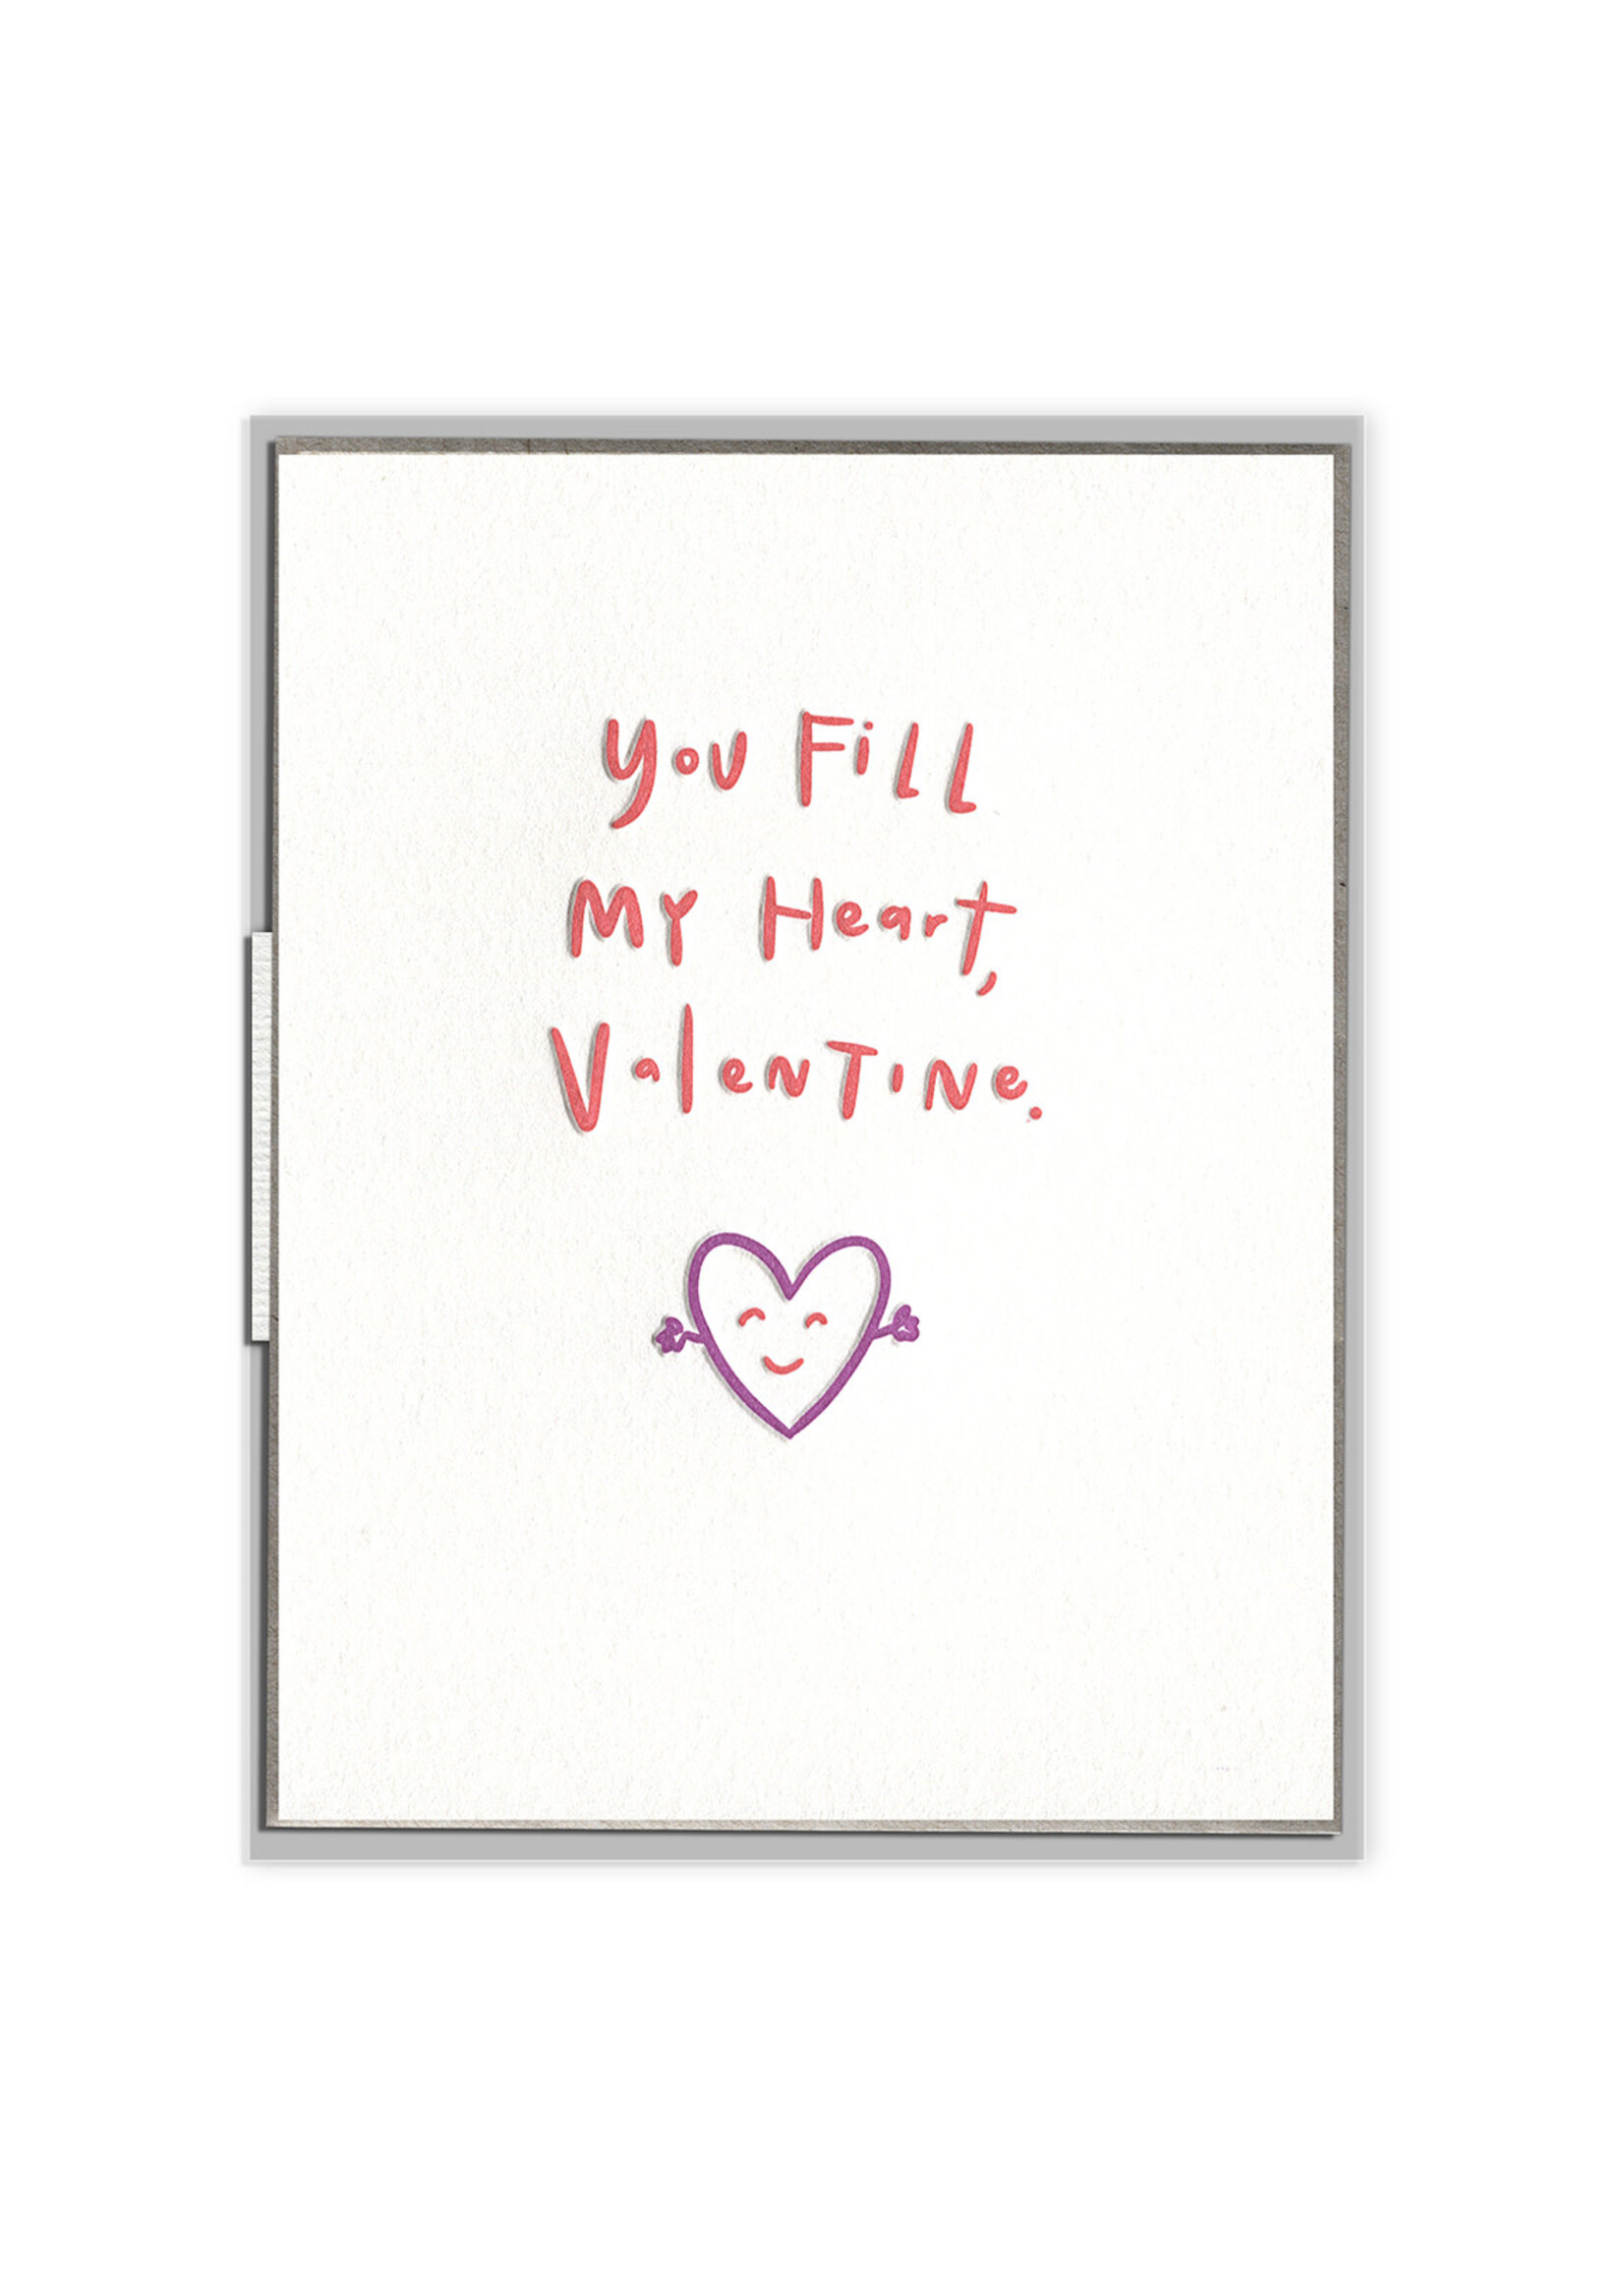 You Fill
My Heart,
Valentine.